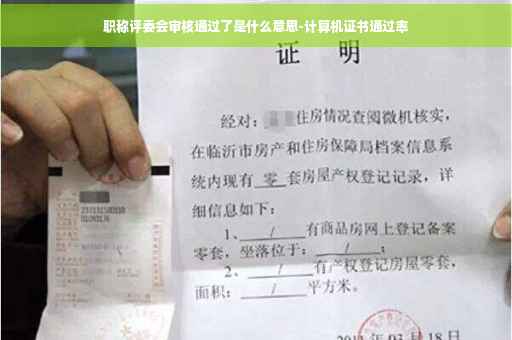 职称评委会审核通过了是什么意思-计算机证书通过率
证 明
经对：住房情况查阅微机核实，
在临沂市房产和住房保障局档案信息系
统内现有 零 套房屋产权登记记录，详
细信息如下：
1、 / 有商品房网上登记备案
零套，坐落位于： / ；
2、 / 有产权登记房屋零套，
面积： / 平方米。
年03月18日